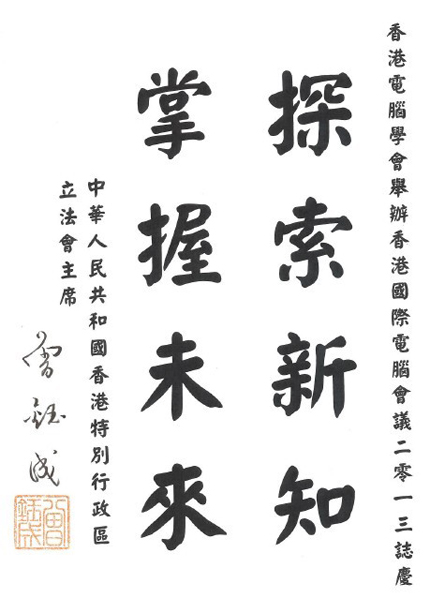 香港電腦學會舉辦香港國際電腦會議二零一三誌慶
探索新知
掌握未來
中華人民共和國香港特別行政區
立法會主席
曾鈺成
曾鈺成